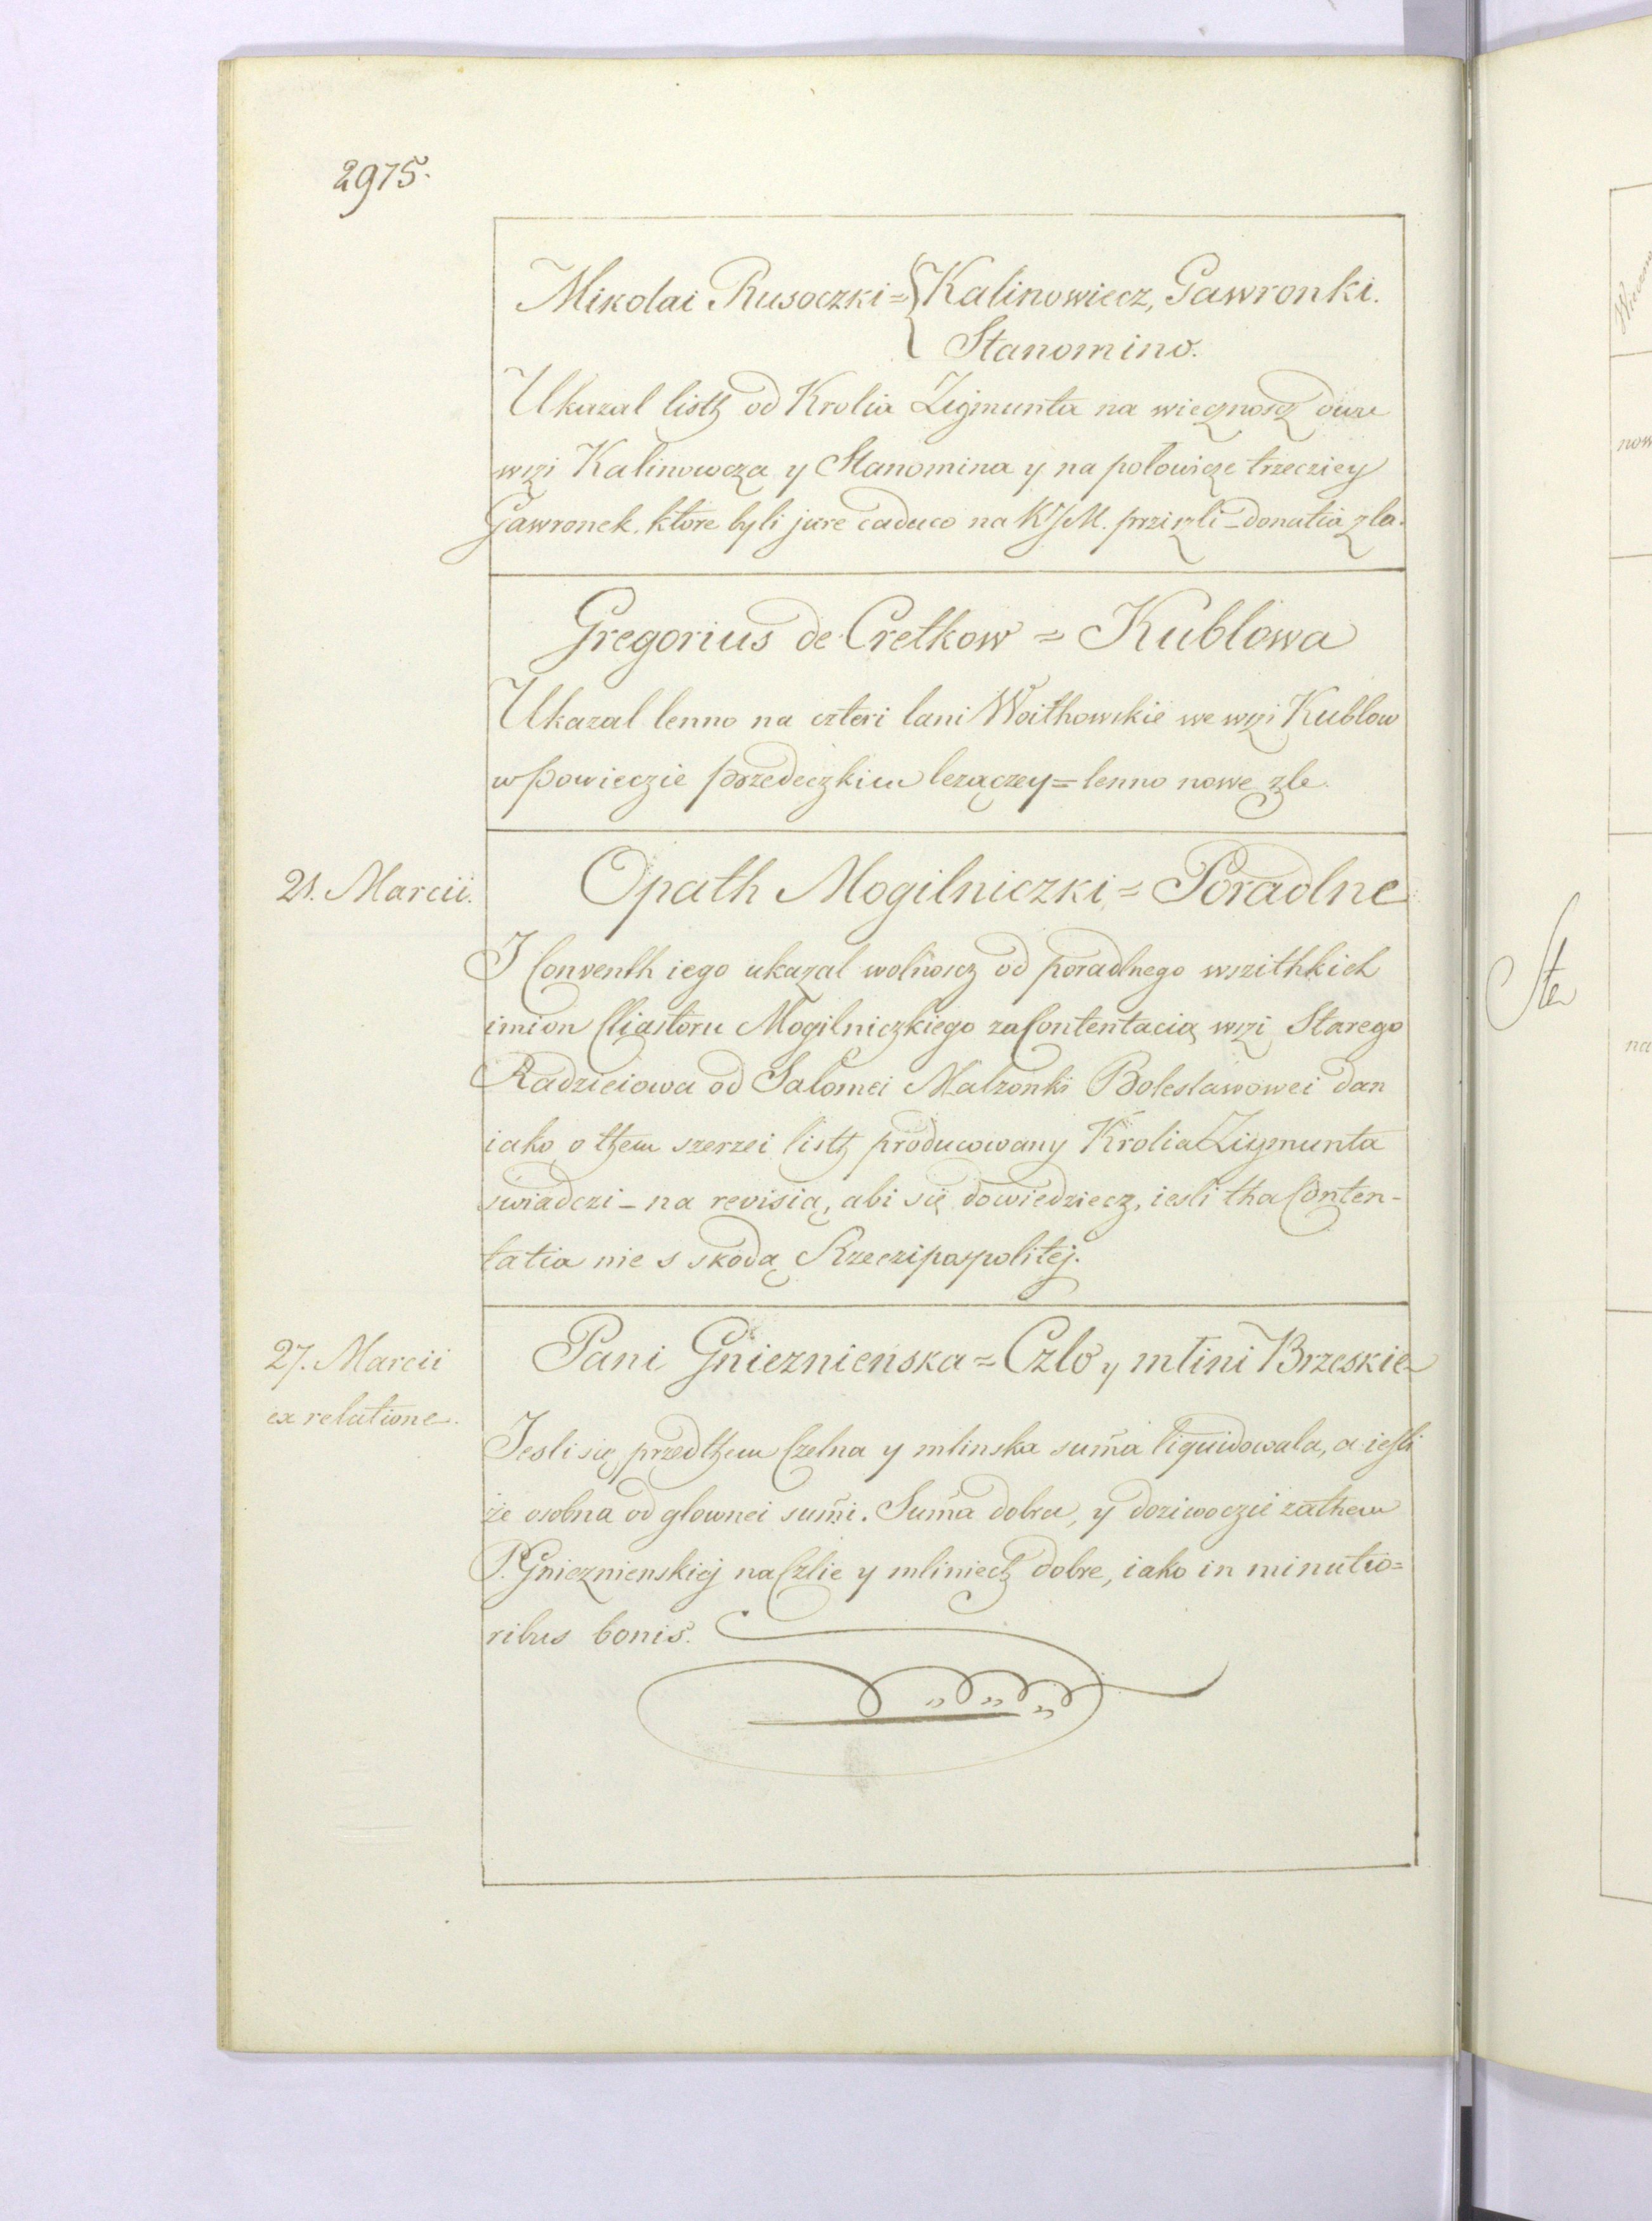 2975.
Mikolai Rusoczki = { Kalinowiecz, Gawronki.
Stanomino.
Ukazal listh od Krolia Zigmunta na wiecznoscz dwu
wszi Kalinowcza y Stanomina y na polowicze trzecziey
Gawronek, ktore byli jure caduco na KJM. prziszli – donatia zla.
Gregorius de Cretkow = Kublowa
Ukazal lenno na czteri lani Woithowskie we wszi Kublow
w powieczie przedeczkim lezączey = lenno nowe zle.
21. Marcii.
Opath Mogilniczki = Poradlne
I Conventh iego ukazal wolnoscz od poradlnego wszithkich
imion Cliastoru Mogilniczkiego za Contentacią wszi Starego
Radzieiowa od Salomei Malzonki Boleslawowei dan
iako o them szerzei listh producowany Krolia Zigmunta
swiadczi – na revisią, abi się dowiedziecz, iesli tha Conten-
tatia nie s skodą Rzeczipospolitej.
27. Marcii
ex relatione.
Pani Gnieznienska = Czlo y mlini Brzeskie
Iesli się przedthem Czelna y mlinska suma liquidowala, a iesli
że osobna od glownei sumi. Suma dobra, y doziwoczie zathem
P. Gnieznienskiej na Czlie y mliniech dobre, iako in minutio=
ribus bonis.
Ste
now
na